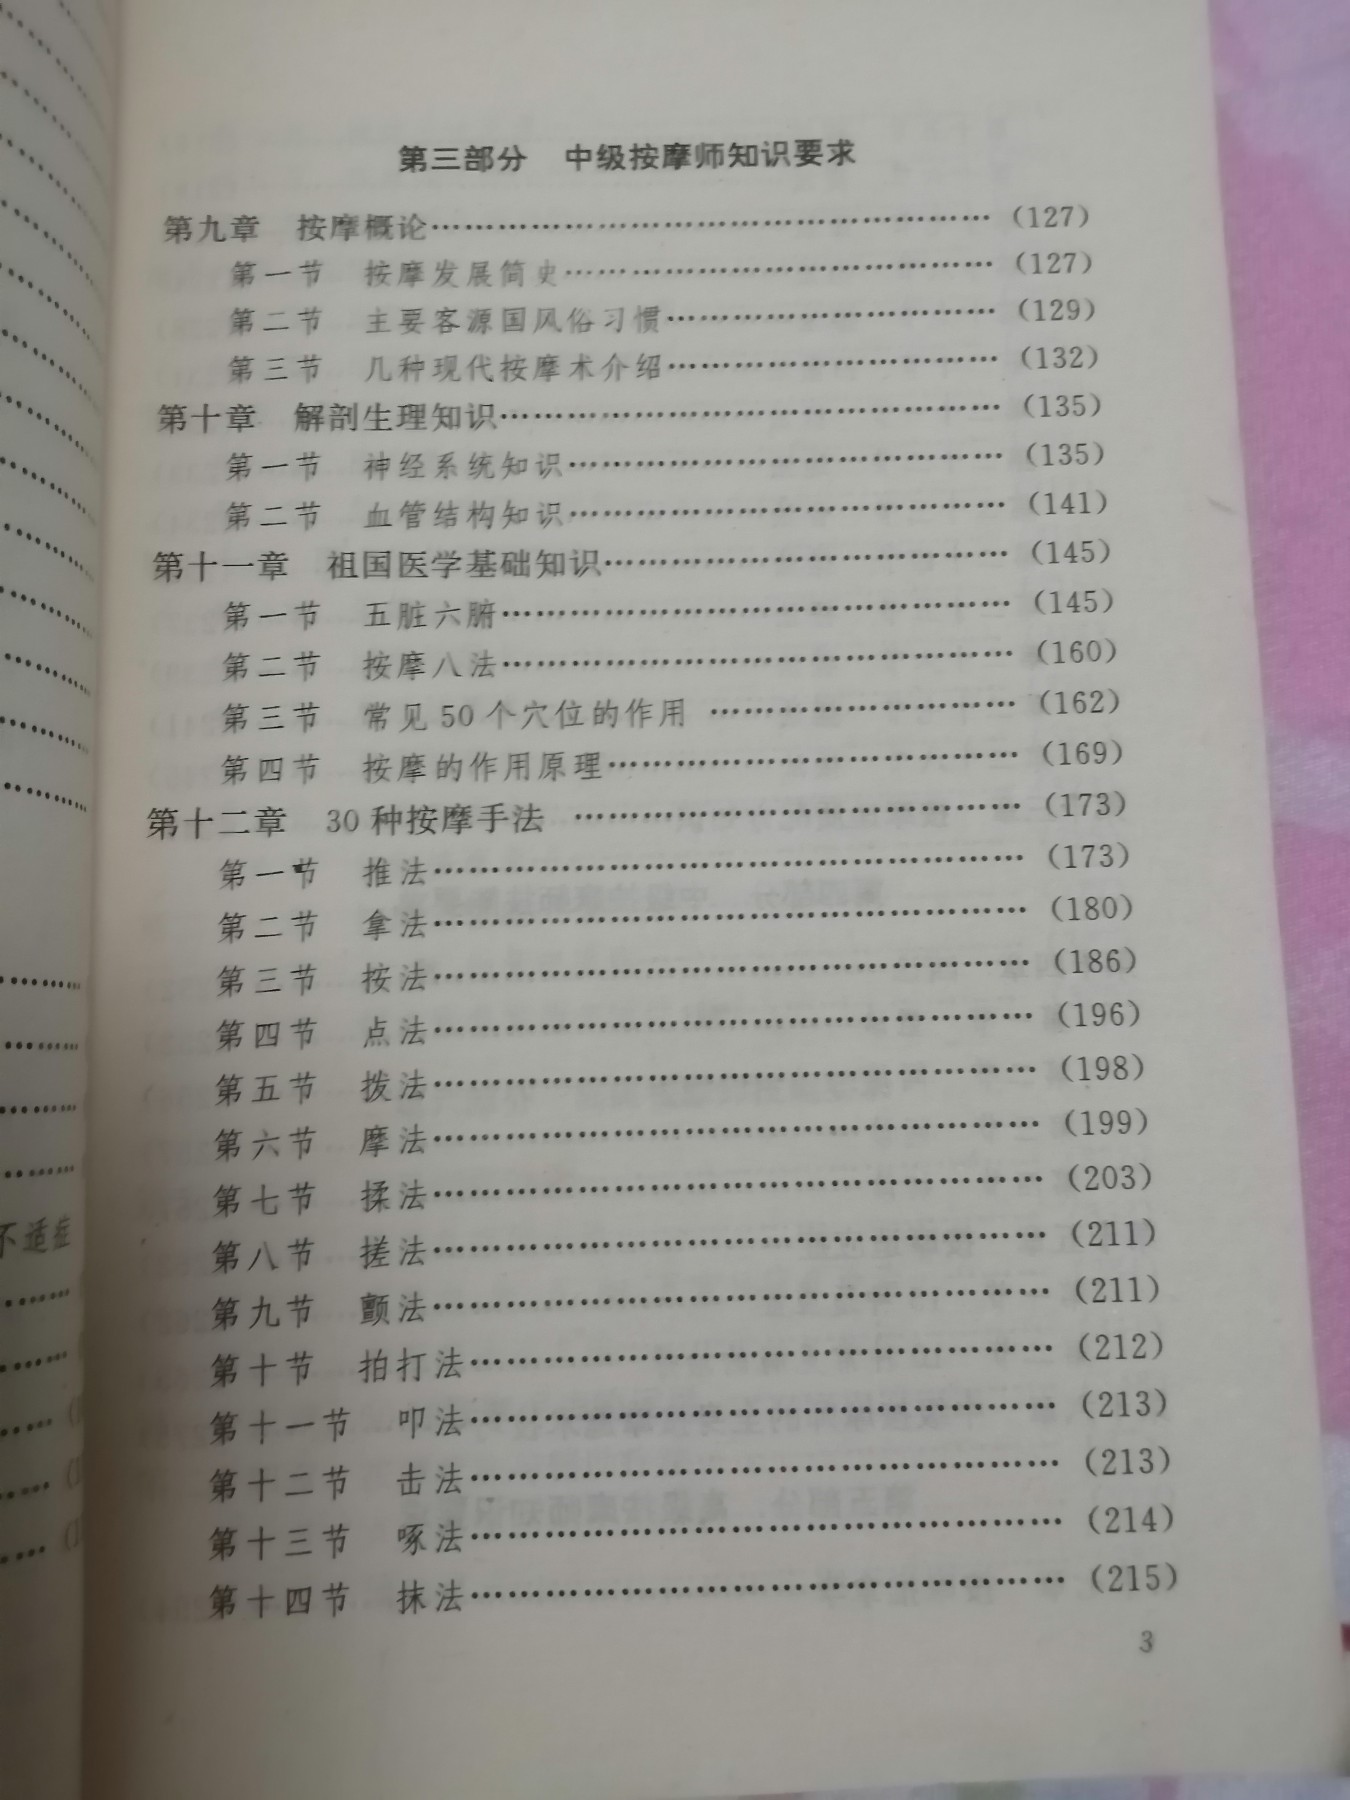 第三部分 中级按摩师知识要求
第九章 按摩概论………………………………………………(127)
第一节 按摩发展简史……………………………………(127)
第二节 主要客源国风俗习惯……………………………(129)
第三节 几种现代按摩术介绍……………………………(132)
第十章 解剖生理知识…………………………………………(135)
第一节 神经系统知识……………………………………(135)
第二节 血管结构知识……………………………………(141)
第十一章 祖国医学基础知识…………………………………(145)
第一节 五脏六腑…………………………………………(145)
第二节 按摩八法…………………………………………(160)
第三节 常见50个穴位的作用 …………………………(162)
第四节 按摩的作用原理…………………………………(169)
第十二章 30种按摩手法 ……………………………………(173)
第一节 推法………………………………………………(173)
第二节 拿法………………………………………………(180)
第三节 按法………………………………………………(186)
第四节 点法………………………………………………(196)
第五节 拨法………………………………………………(198)
第六节 摩法………………………………………………(199)
第七节 揉法………………………………………………(203)
第八节 搓法………………………………………………(211)
第九节 颤法………………………………………………(211)
第十节 拍打法……………………………………………(212)
第十一节 叩法……………………………………………(213)
第十二节 击法……………………………………………(213)
第十三节 啄法……………………………………………(214)
第十四节 抹法……………………………………………(215)
3
不适症